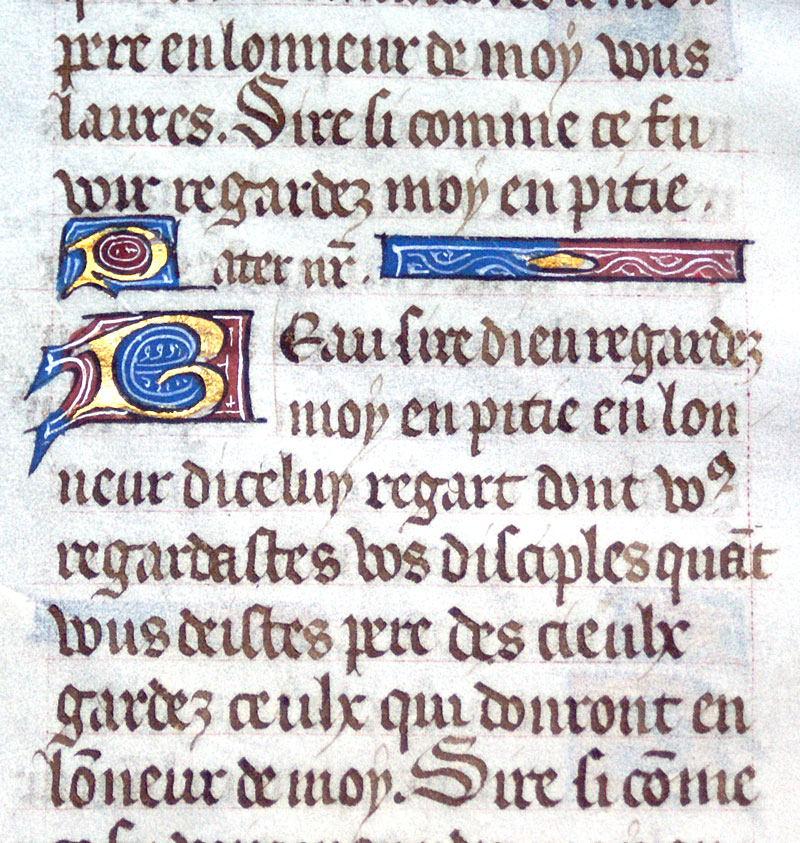 pere en lonneur de moy vous
laures. Sire si comme ce fu
voir regardez moy en pitie.
Pater nr̄.
Beau sire dieu regardez
moy en pitie en lon
neur diceluy regart dont voꝯ
regardastes vos disciples quāt
vous deistes pere des cieulx
gardez ceulx qui donront en
lōneur de moy. Sire si cōme